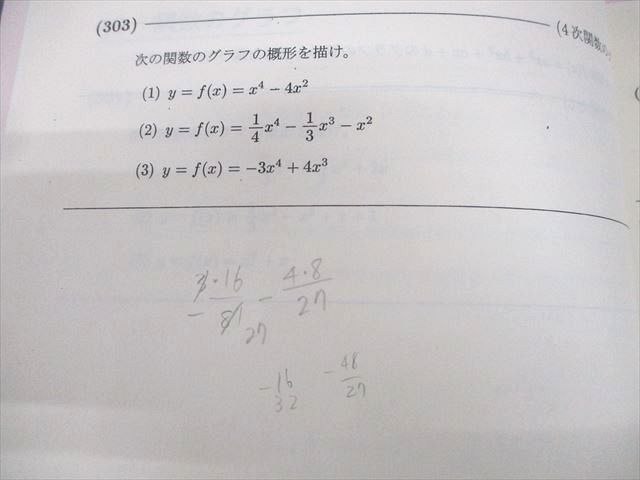 (303)
(4次関数の
次の関数のグラフの概形を描け。
(1) y = f(x) = x⁴ − 4x²
(2) y = f(x) = 1/4 x⁴ − 1/3 x³ − x²
(3) y = f(x) = −3x⁴ + 4x³
− 3·16/81 27 − 4·8/27
− 16/32 − 48/27